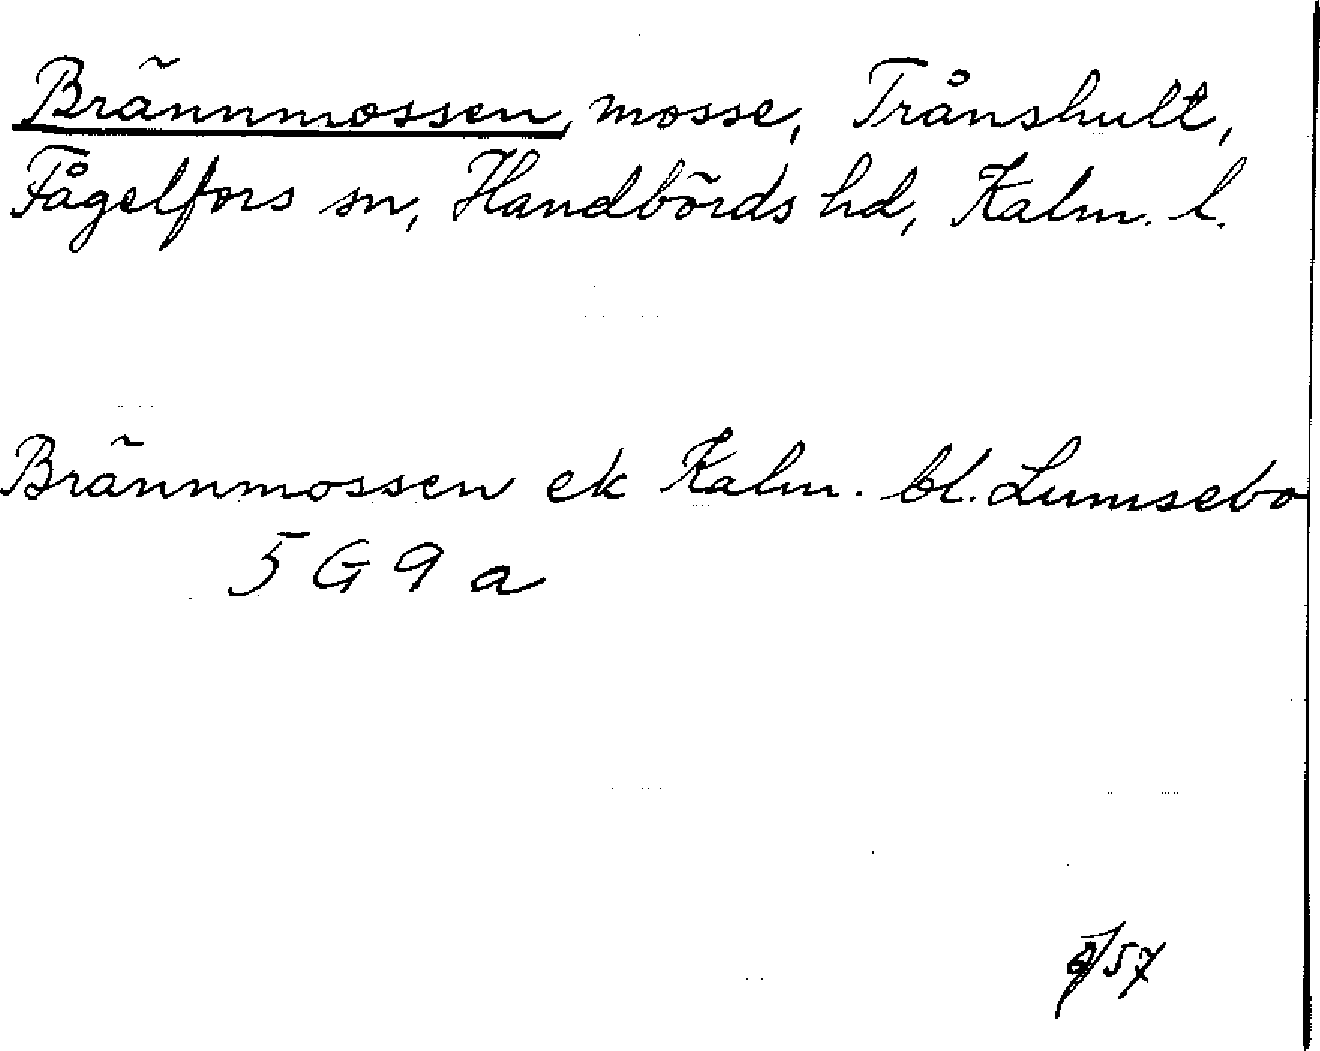 Brännmossen, mosse, Trånshult,
Fågelfors sn, Handbörds hd, Kalm. l.
Brännmossen ek Kalm. bl. Lumsebo
5 G 9 a